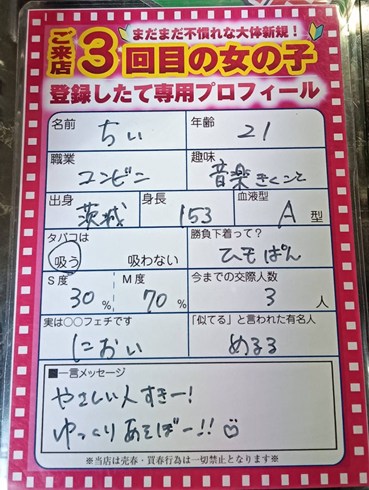 まだまだ不慣れな大体新規!
ご来店3回目の女の子
登録したて専用プロフィール
名前 ちぃ 年齢 21
職業 コンビニ 趣味 音楽きくこと
出身 茨城 身長 153 血液型 A型
タバコは 吸う 吸わない 勝負下着って? ひもぱん
S度 30% M度 70% 今までの交際人数 3人
実は○○フェチです におい 「似てる」と言われた有名人 めるる
■一言メッセージ
やさしい人すきー!
ゆっくりあそぼー!!♡
※当店は売春・買春行為は一切禁止となります※